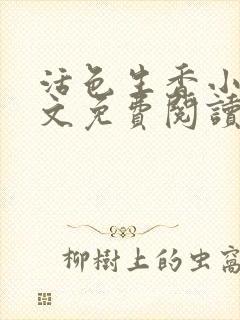 活色生香小
文免費閱讀
柳樹上的虫窩